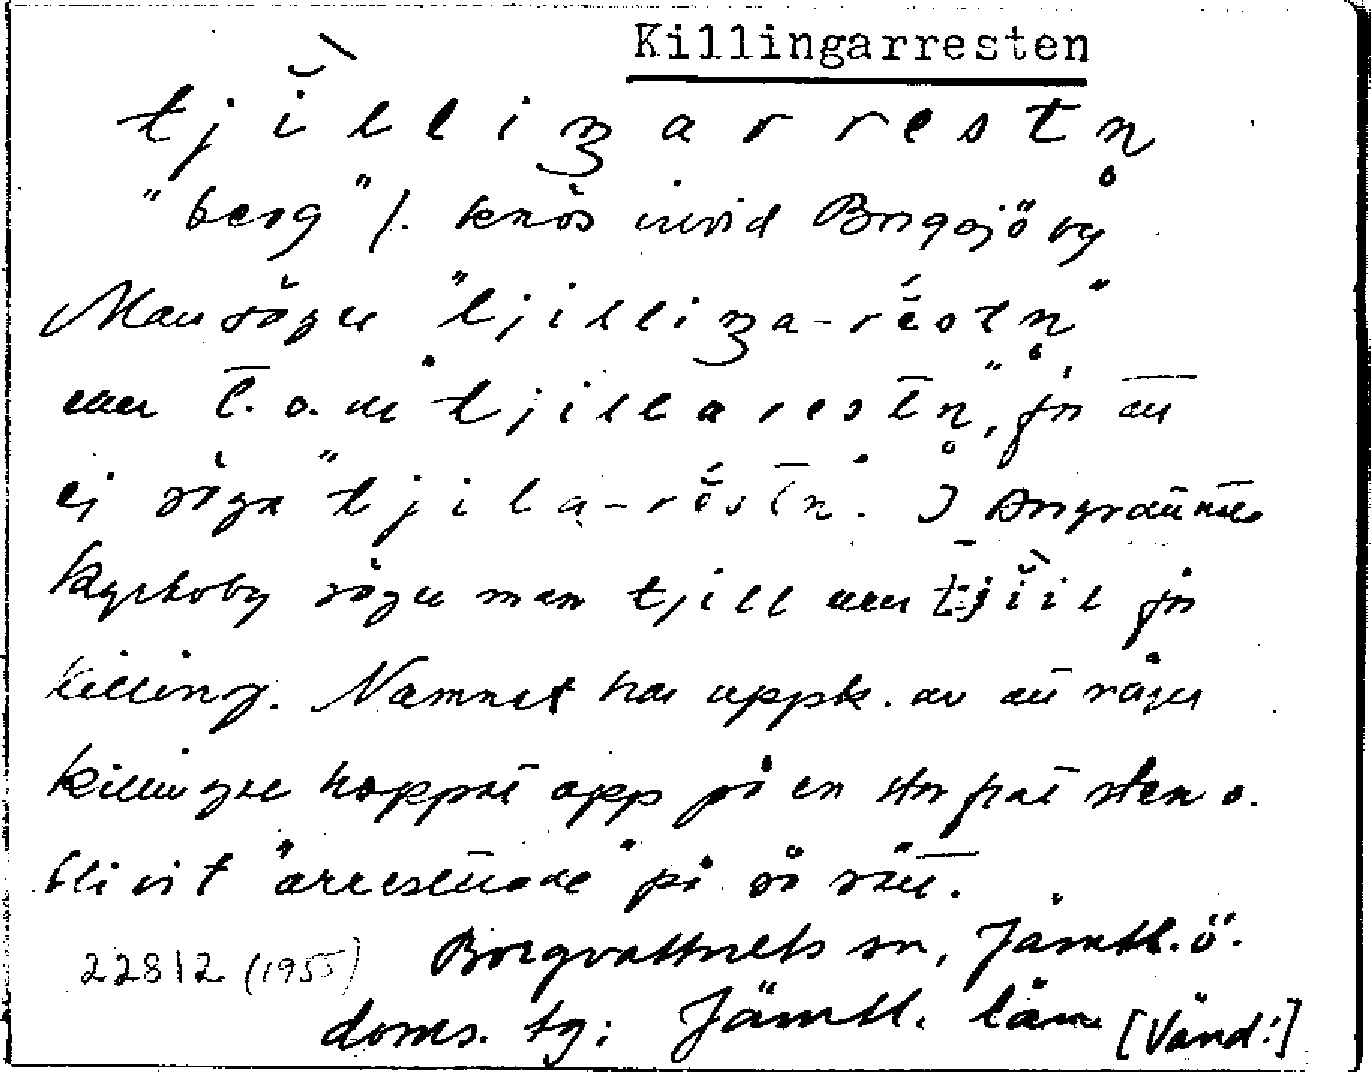 Killingarresten
tjillinarrestn
"berg" /. knös invid Borgsjö by
Man säger "tjillinga-restn"
eller t.o.m "tjillarestn", för att
ej säga "tjila-restn". I Borgvattnets
kyrkoby säger man tjill eller tjiil för
killing. Namnet har uppk. av att några
killingar hoppat opp på en stor flat sten o.
blivit "arresterade" på så sätt.
22812 (1955) Borgvattnets sn, Jämtl. ö.
doms. tg; Jämtl. län [Vänd!]